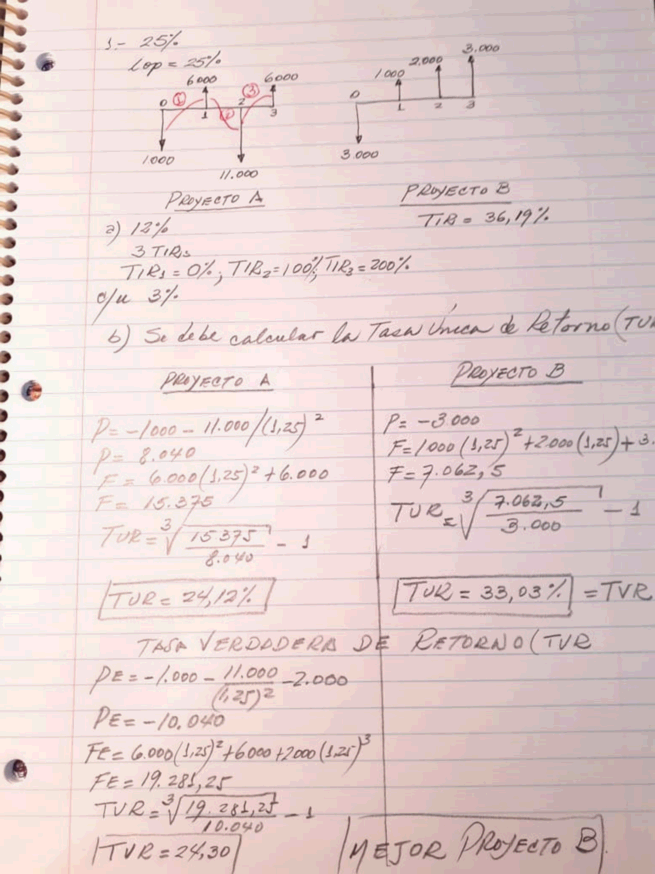 1- 25%
iop = 25%
6000 6000 1000 2.000 3.000
0 1 2 3 0 1 2 3
1000 11.000 3.000
PROYECTO A PROYECTO B
TIR = 36,19%
a) 12%
3 TIRs
TIR1 = 0%; TIR2 = 100%; TIR3 = 200%
c/u 3%
b) Se debe calcular la Tasa Única de Retorno (TU
PROYECTO A
P = -1000 - 11.000/(1,25)²
P = 8.040
F = 6.000(1,25)² + 6.000
F = 15.375
TUR = ³√(15375/8.040) - 1
TUR = 24,12%
PROYECTO B
P = -3.000
F = 1000(1,25)² + 2.000(1,25) + 3.
F = 7.062,5
TUR = ³√(7.062,5/3.000) - 1
TUR = 33,03% = TVR
TASA VERDADERA DE RETORNO (TVR
PE = -1.000 - 11.000/(1,25)² - 2.000
PE = -10.040
FE = 6.000(1,25)² + 6000 + 2000(1,25)³
FE = 19.281,25
TVR = ³√(19.281,25/10.040) - 1
TVR = 24,30
MEJOR PROYECTO B